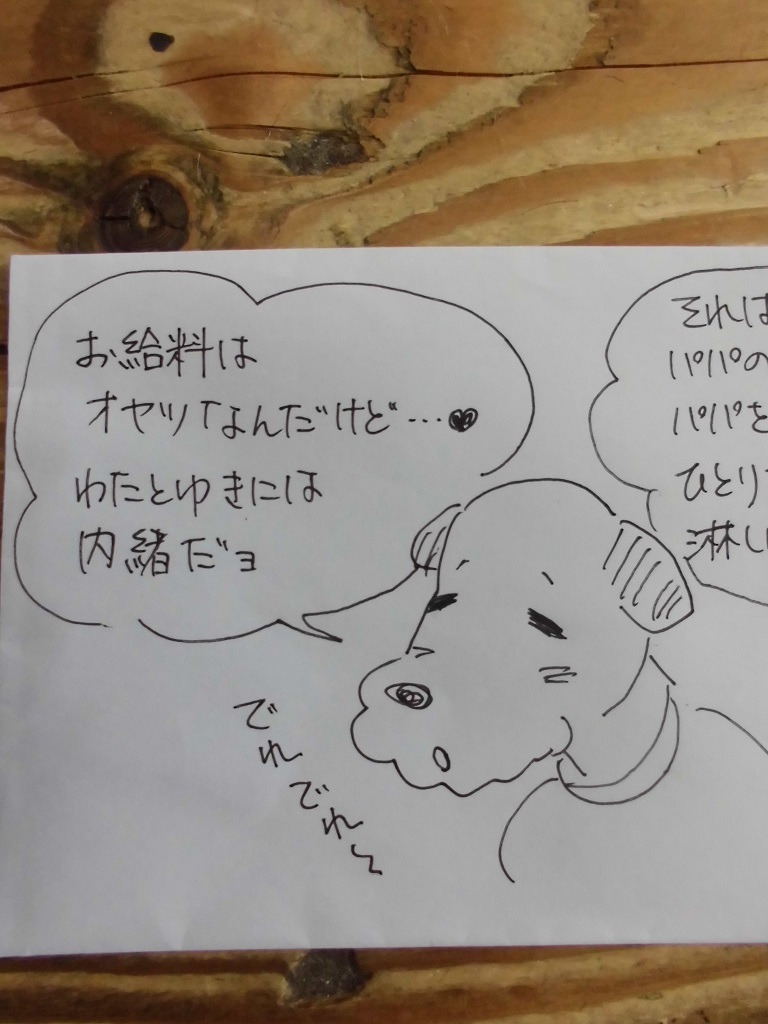 お給料は
オヤツなんだけど…♥
わたとゆきには
内緒だヨ
それは
パパの
パパを
ひとり
淋し
でれでれ〜